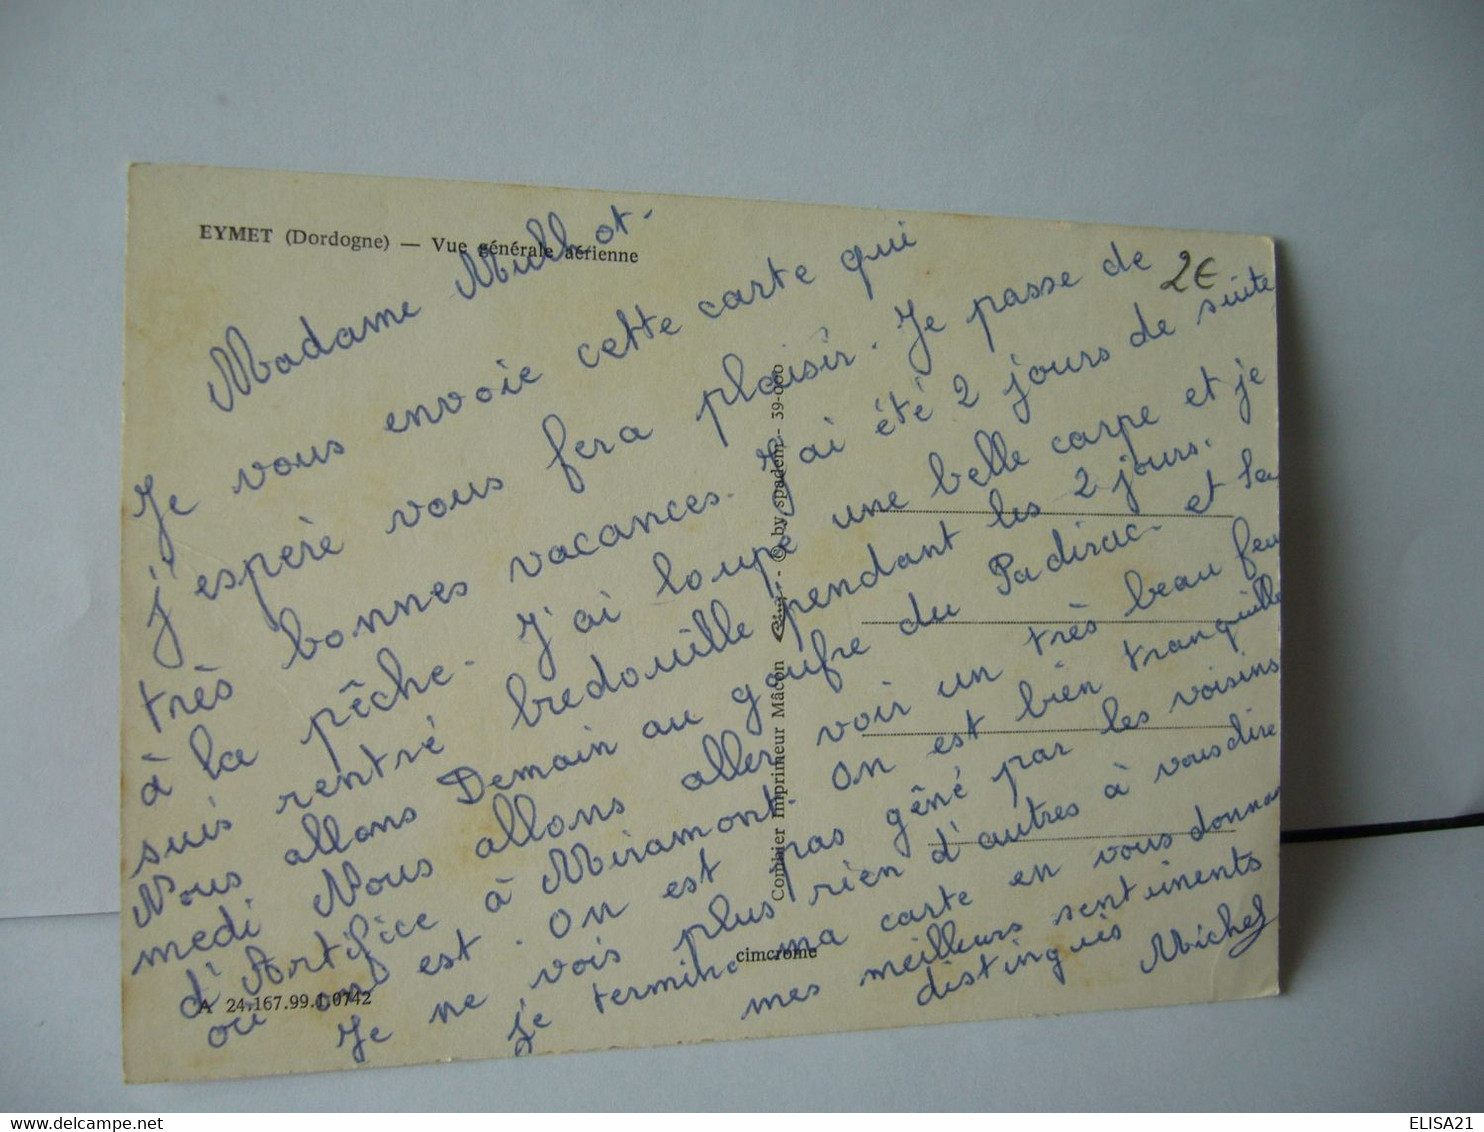 EYMET (Dordogne) — Vue générale aérienne
2€
Madame Mullot.
Je vous envoie cette carte qui
j'espère vous fera plaisir. Je passe de
très bonnes vacances. J'ai été 2 jours de suite
à la pêche. J'ai loupé une belle carpe et je
suis rentré bredouille pendant les 2 jours.
Nous allons Demain au goufre du Padirac et la
medi Nous allons aller voir un très beau feu
d'Artifice à Miramont. On est bien tranquille
ou on est. On est pas gêné par les voisins
Je ne vois plus rien d'autres à vous dire
je termine ma carte en vous donnant
mes meilleurs sentiments
distingués
Michel
Combier Imprimeur Mâcon - © by spadem - 39-000
cimcrome
A 24.167.99.1.0742
ELISA21